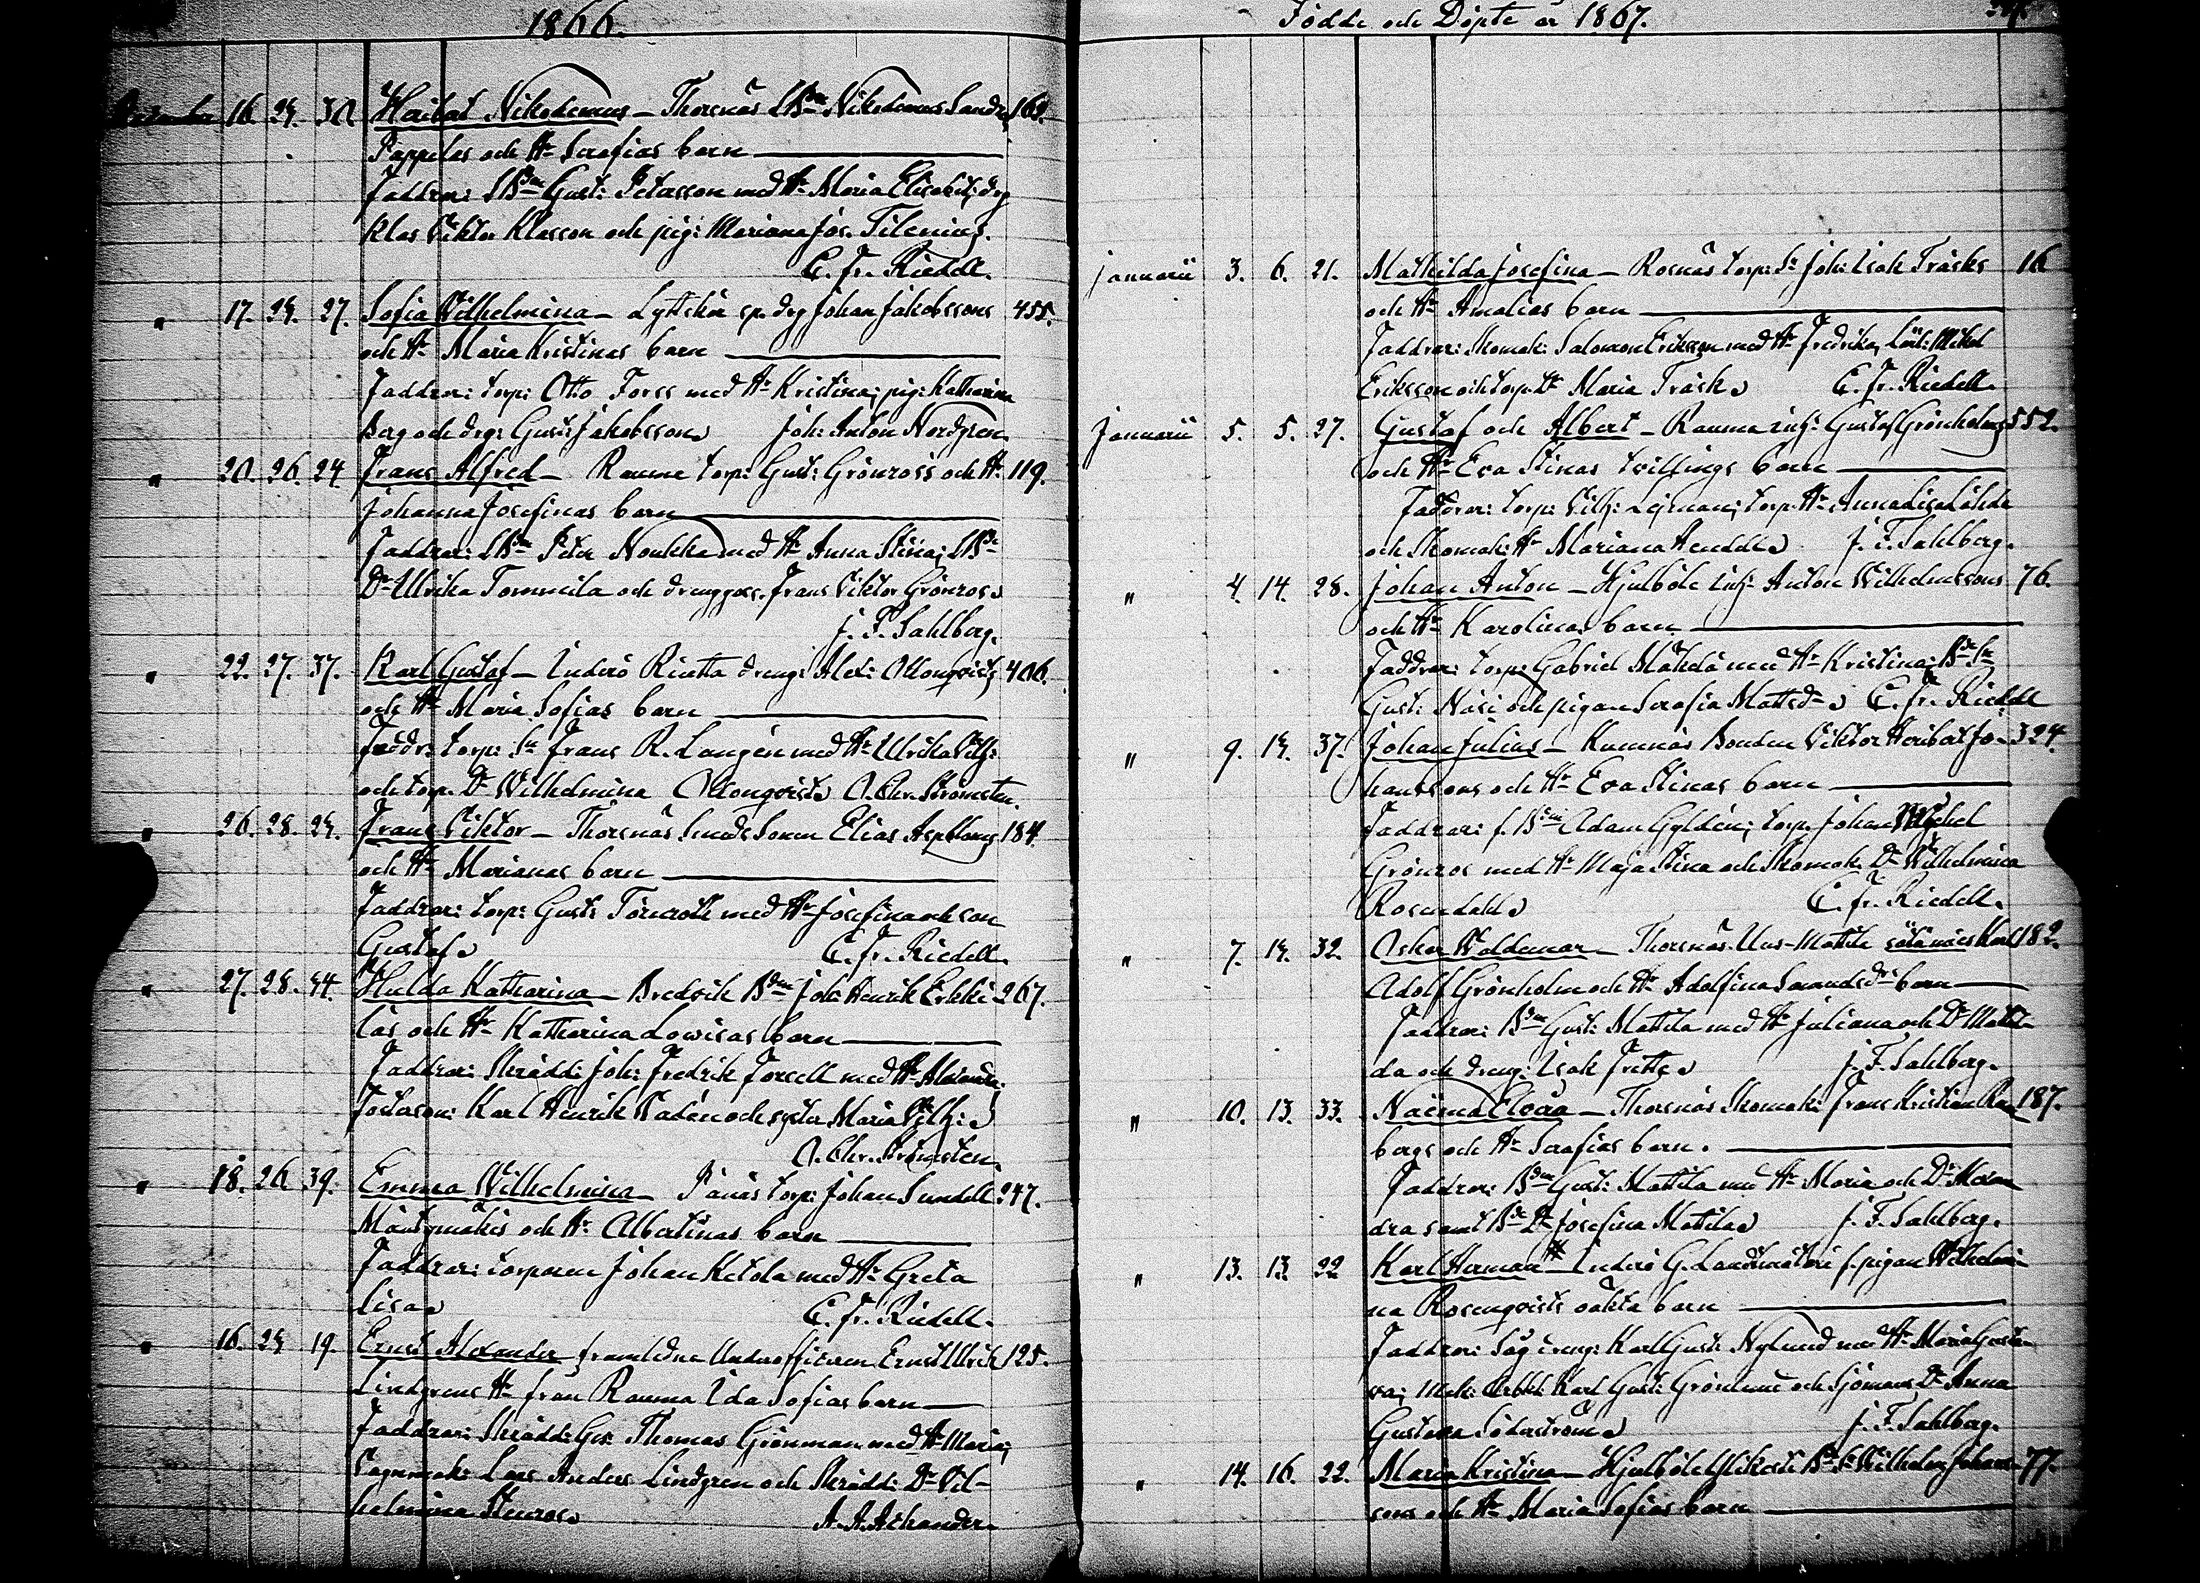 1866.
December 16. 24. 30. Heribat Nikodemus – Thorsnäs LBdn Nikodemus Sand- 169.
Pappilas och Hr Serafias barn
Faddrar: LBdn Gust: Petersson med Hr Maria Elisabet; drg
Klas Viktor Klasson och pig: Mariana Jos.
C. Fr. Riedell.
" 17. 24. 27. Sofia Wilhelmina – Lyttskär sp. drg Johan Jakobssons 455.
och Hr Maria Kristinas barn
Faddrar: torp: Otto Forss med Hr Kristina; pig: Katharina
Berg och drg: Gust: Jakobsson Joh: Anton Nordgren.
" 20. 26. 24. Frans Alfred – Raumo torp: Gust: Grönroos och Hr 119.
Johanna Josefinas barn
Faddrar: LBdn Peter Noukka med Hr Anna Stina; LBde
Dr Ulrika Tommila och drenggoss. Frans Viktor Grönroos
J. F. Sahlberg.
" 22. 27. 37. Karl Gustaf – Inderö dreng: Alex: Ollonqvists 406.
och Hr Maria Sofias barn
Faddr: torp: Sn Frans R. Langén med Hr Ulrika Vilh:
och torp. Dr Wilhelmina Ollonqvist A. Chr. Strömsten.
" 26. 28. 24. Frans Viktor – Thorsnäs Smeds Sonen Elias Asplunds 184.
och Hr Marianas barn
Faddrar: torp: Gust: Törnroth med Hr Josefina och son
Gustaf C. Fr. Riedell.
" 27. 28. 44. Hulda Katharina – Bredvik Bdn Joh: Henrik Erkki- 267.
läs och Hr Katharina Lowisas barn
Faddrar: Skrädd: Joh: Fredrik Forsell med Hr Alexandra;
Karl Henrik Wadén och syster Maria Vilh:
A. Chr. Strömsten.
" 18. 26. 39. Emma Wilhelmina – Pänäs torp: Johan Sundell 247.
Mäntymäkis och Hr Albertinas barn
Faddrar: torparen Johan Ketola med Hr Greta
Lisa C. Fr. Riedell.
" 16. 24. 19. Ernst Alexander framlidne Underofficeren Ernst Ulrik 125.
Lindgrens Hr från Rauma Ida Sofias barn
Faddrar: Skrädd: Ges. Thomas Grönman med Hr Maria;
Vagnmak: Lars Anders Lindgren och Skrädd: Dr Vil-
helmina Stenroos A. A. Achander.
Födde och Döpte år 1867.
Januarii 3. 6. 21. Mathilda Josefina – Rosnäs torp: Sn Joh: Isak Träsks 16
och Hr Amalias barn
Faddrar: Skomak: Salomon Eriksson med Hr Fredrika, Mikel
Eriksson och torp: Dr Maria Träsk C. Fr. Riedell.
Januarii 5. 5. 27. Gustaf och Albert – Rauma inh: Gustaf Grönholms 552.
och Hr Eva Stinas tvillings barn
Faddrar: torp: Vilh: torp. Hr Anna Lisa Lähde
och Skomak: Hr Mariana J. F. Sahlberg.
" 4. 14. 28. Johan Anton – Hjulböle inh: Anton Wilhelmssons 76.
och Hr Karolinas barn
Faddrar: torp: Gabriel Mäkelä med Hr Kristina; Bde Sn
Gust: Näsi och pigan Serafia Mattsdr C. Fr. Riedell
" 9. 14. 37. Johan Julius – Kumnäs Bonden Viktor Heribat Jo- 324.
hanssons och Hr Eva Stinas barn
Faddrar: f. Bdn Adam Gyldén; torp. Johan Michel
Grönroos med Hr Maja Stina och Skomak: Dr Wilhelmina
Rosendahl C. Fr. Riedell.
" 7. 14. 32. Oskar Waldemar – Thorsnäs Uus-Mattila Karl 182.
Adolf Grönholm och Hr Adolfina barn
Faddrar: Bdn Gust: Mattila med Hr Juliana och Dr Matil-
da och dreng: Isak J. F. Sahlberg.
" 10. 13. 33. Naëma Elvira – Thorsnäs Skomak: Frans Kristian Ra- 187.
bergs och Hr Serafias barn.
Faddrar: Bdn Gust: Mattila med Hr Maria och Dr Alexan
dra samt Bde Dr Josefina Mattila J. F. Sahlberg.
" 13. 13. 22 Karl Herman – Inderö G. Landtmäteri f. pigan Wilhelmi-
na Rosenqvists oäkta barn
Faddrar: Såg dreng: Karl Gust: Nylund med Hr Maria Gusta-
va; Karl Gust: Grönlund och Sjömans Dr Anna
Gustava Söderström J. F. Sahlberg.
" 14. 16. 22. Maria Kristina – Hjulböle Bde Sn Wilhelm Johans- 77.
sons och Hr Maria Sofias barn